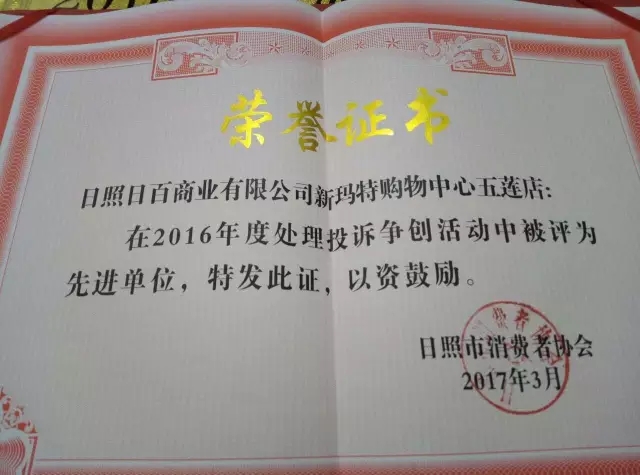 荣誉证书
日照日百商业有限公司新玛特购物中心五莲店:
在2016年度处理投诉争创活动中被评为
先进单位，特发此证，以资鼓励。
日照市消费者协会
2017年3月